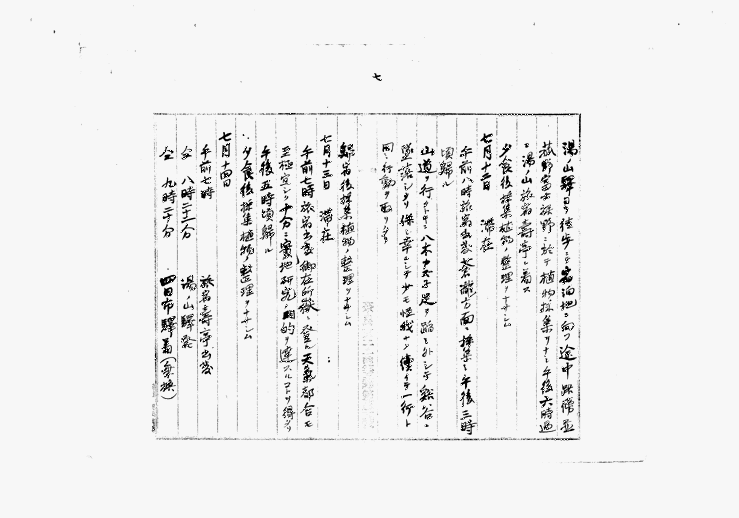 七
湯ノ山驛ヨリ徒歩ニテ宿泊地ニ向フ途中 並
菰野富士旅野ニ於テ植物採集ヲナシ午後六時過
湯ノ山旅宿壽亭ニ着ス
夕食後採集植物ノ整理ヲナサシム
七月十二日 滞在
午前八時旅宿出発 方面ニ採集シ午後三時
頃歸ル
山道ヲ行ク 八木 足ヲ踏ミ外シテ 谷ニ
墜落シタリ 幸ニシテ少モ怪我ナシ 一行ト
同シ行動ヲ取リ
歸宿後採集植物ノ整理ヲナサシム
七月十三日 滞在
午前七時旅宿出発御在所嶽ニ登ル天氣都合モ
至極宜シク十分ニ實地研究ノ目的ヲ達スルコトヲ得タリ
午後五時頃歸ル
夕食後採集植物ノ整理ヲナサシム
七月十四日
午前七時 旅宿壽亭出発
仝 八時二十二分 湯ノ山驛発
仝 九時二十分 四日市驛着(乗換)